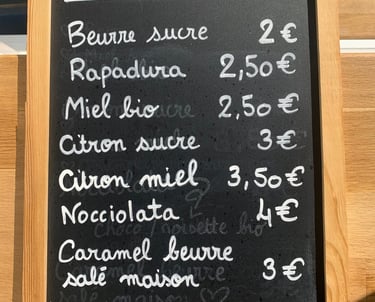 Beurre sucre 2€
Rapadura 2,50€
Miel bio 2,50€
Citron sucre 3€
Citron miel 3,50€
Nocciolata 4€
choco / noisette bio
Caramel beurre
salé maison 3€